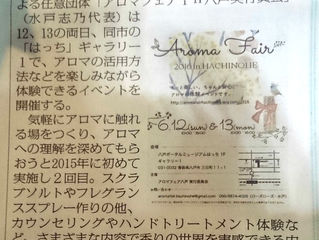 よる任意団体「アロマフェアin八戸実行委員会」
(水戸志乃代表)は
12、13の両日、同市の
「はっち」ギャラリー
1で、アロマの活用方
法などを楽しみながら
体験できるイベントを
開催する。
気軽にアロマに触れ
る場をつくり、アロマ
への理解を深めてもら
おうと2015年に初めて
実施し2回目。スクラ
ブソルトやフレグラン
ススプレー作りの他、
カウンセリングやハンドトリートメント体験な
ど、さまざまな内容で香りの世界を実感できる内
Aroma Fair
2016 in HACHINOHE
6.12(sun)&13(mon)
八戸ポータルミュージアムはっち 1F
ギャラリー1
アロマフェア八戸 実行委員会